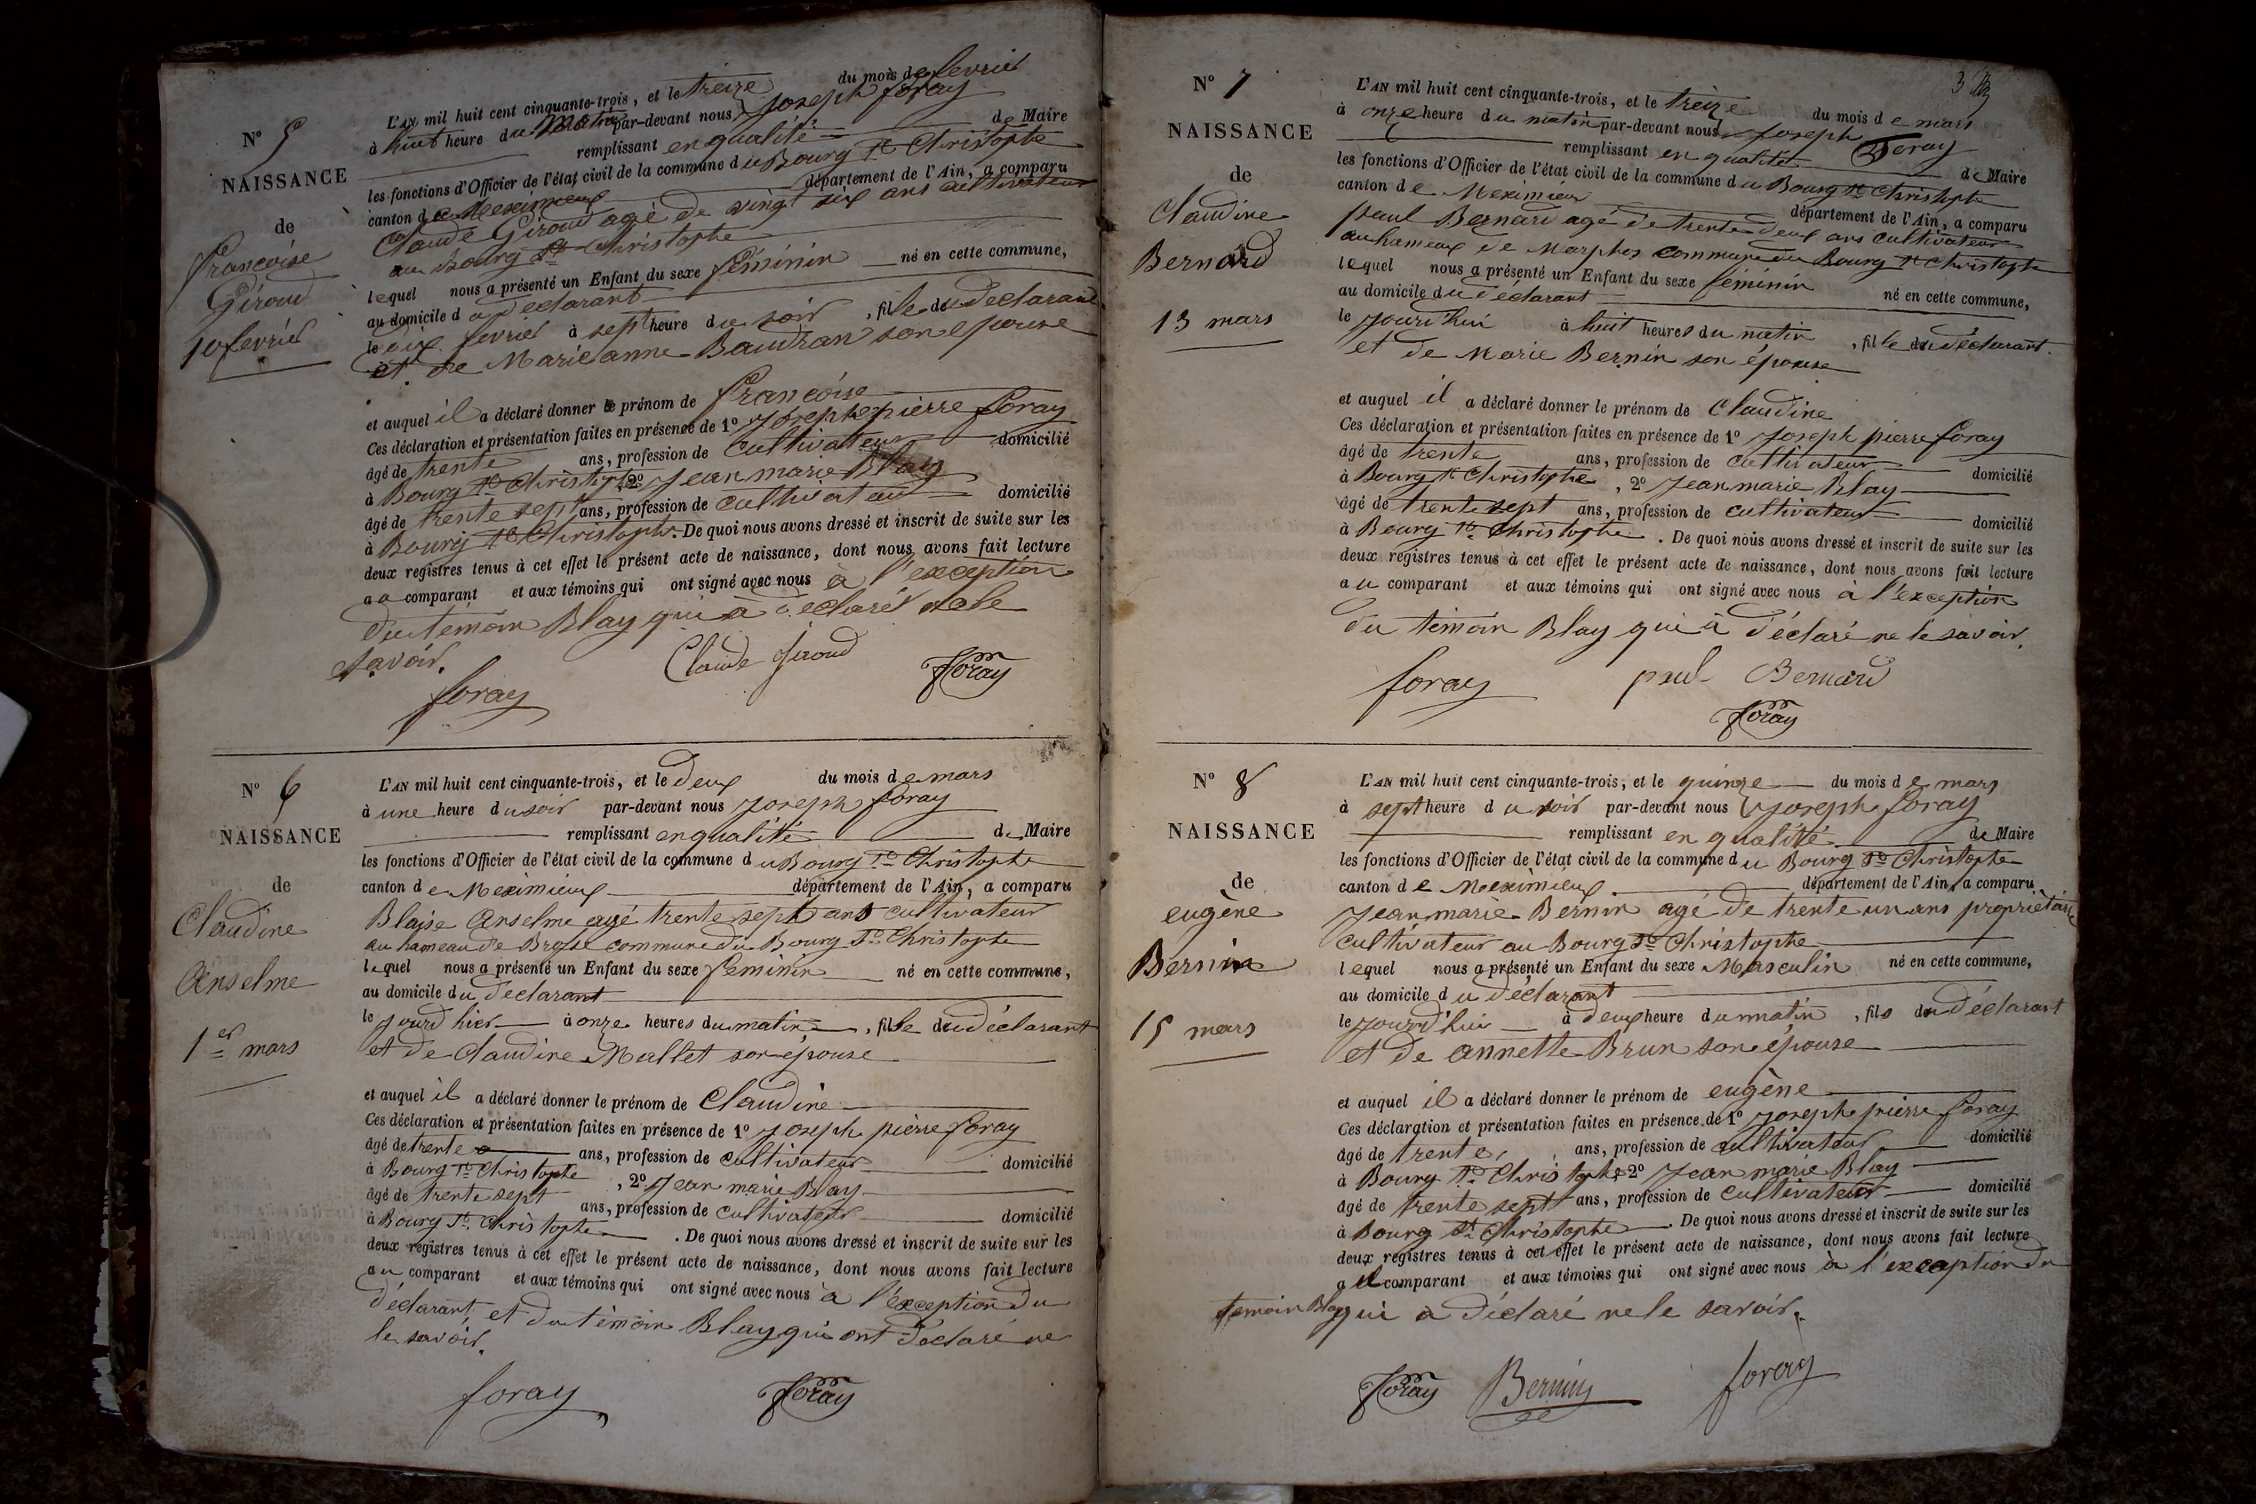 N° 5
NAISSANCE
de
françoise
Giroud
10 fevrier
L'AN mil huit cent cinquante-trois, et le treize du mois de fevrier
à huit heure du Matin par-devant nous Joseph foray
remplissant en qualité de Maire
les fonctions d'Officier de l'état civil de la commune du Bourg St Christophe
canton de Meximieux département de l'Ain, a comparu
Claude Giroud agé de vingt six ans cultivateur
au Bourg St Christophe
lequel nous a présenté un Enfant du sexe féminin né en cette commune,
au domicile du declarant
le dix fevrier à sept heure du soir, fille du declarant
et de Marie anne Baudran son epouse
et auquel il a déclaré donner le prénom de françoise
Ces déclaration et présentation faites en présence de 1° Joseph pierre foray
âgé de trente ans, profession de cultivateur domicilié
à Bourg St Christophe, 2° Jean marie Blay
âgé de trente sept ans, profession de cultivateur domicilié
à Bourg St Christophe. De quoi nous avons dressé et inscrit de suite sur les
deux registres tenus à cet effet le présent acte de naissance, dont nous avons fait lecture
au comparant et aux témoins qui ont signé avec nous à l'exception
du témoin Blay qui à déclaré ne le
savoir.
foray Claude Giroud foray
N° 6
NAISSANCE
de
Claudine
Anselme
1er mars
L'AN mil huit cent cinquante-trois, et le deux du mois de mars
à une heure du soir par-devant nous Joseph foray
remplissant en qualité de Maire
les fonctions d'Officier de l'état civil de la commune du Bourg St Christophe
canton de Meximieux département de l'Ain, a comparu
Blaise Anselme agé trente sept ans cultivateur
au hameau de Brosse commune du Bourg St Christophe
lequel nous a présenté un Enfant du sexe feminin né en cette commune,
au domicile du declarant
le jourd hier à onze heures du matin, fille du déclarant
et de Claudine Mallet son épouse
et auquel il a déclaré donner le prénom de Claudine
Ces déclaration et présentation faites en présence de 1° Joseph pierre foray
âgé de trente ans, profession de cultivateur domicilié
à Bourg St Christophe, 2° Jean marie Blay
âgé de trente sept ans, profession de cultivateur domicilié
à Bourg St Christophe. De quoi nous avons dressé et inscrit de suite sur les
deux registres tenus à cet effet le présent acte de naissance, dont nous avons fait lecture
au comparant et aux témoins qui ont signé avec nous à l'exception du
déclarant, et du témoin Blay qui ont déclaré ne
le savoir.
foray foray
3
N° 7
NAISSANCE
de
Claudine
Bernard
13 mars
L'AN mil huit cent cinquante-trois, et le treize du mois de mars
à onze heure du matin par-devant nous Joseph Foray
remplissant en qualité de Maire
les fonctions d'Officier de l'état civil de la commune du Bourg St Christophe
canton de Meximieux département de l'Ain, a comparu
paul Bernard agé de trente deux ans cultivateur
au hameau de Marphos commune du Bourg St Christophe
lequel nous a présenté un Enfant du sexe féminin né en cette commune,
au domicile du déclarant
le jourd'hui à huit heures du matin, fille du déclarant
et de Marie Bernin son épouse
et auquel il a déclaré donner le prénom de Claudine
Ces déclaration et présentation faites en présence de 1° Joseph pierre foray
âgé de trente ans, profession de cultivateur domicilié
à Bourg St Christophe, 2° Jean marie Blay
âgé de trente sept ans, profession de cultivateur domicilié
à Bourg St Christophe. De quoi nous avons dressé et inscrit de suite sur les
deux registres tenus à cet effet le présent acte de naissance, dont nous avons fait lecture
au comparant et aux témoins qui ont signé avec nous à l'exception
du témoin Blay qui à déclaré ne le savoir.
foray paul Bernard
foray
N° 8
NAISSANCE
de
eugène
Bernin
15 mars
L'AN mil huit cent cinquante-trois, et le quinze du mois de mars
à sept heure du soir par-devant nous Joseph foray
remplissant en qualité de Maire
les fonctions d'Officier de l'état civil de la commune du Bourg St Christophe
canton de Meximieux département de l'Ain, a comparu
Jean marie Bernin agé de trente un ans propriétaire
cultivateur au Bourg St Christophe
lequel nous a présenté un Enfant du sexe Masculin né en cette commune,
au domicile du déclarant
le jourd'hui à deux heure du matin, fils du déclarant
et de annette Brun son épouse
et auquel il a déclaré donner le prénom de eugène
Ces déclaration et présentation faites en présence de 1° Joseph pierre foray
âgé de trente, ans, profession de cultivateur domicilié
à Bourg St Christophe 2° Jean marie Blay
âgé de trente sept ans, profession de cultivateur domicilié
à Bourg St Christophe. De quoi nous avons dressé et inscrit de suite sur les
deux registres tenus à cet effet le présent acte de naissance, dont nous avons fait lecture
au comparant et aux témoins qui ont signé avec nous à l'exception du
temoin Blay qui a déclaré ne le savoir.
foray Bernin foray